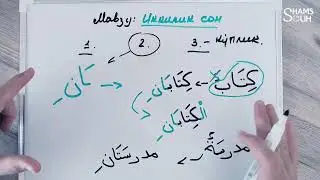 SHAMS
Мавзу: Иккилик сон
1. 2. 3. - кўплик.
كِتَابٌ كِتَابَانِ ـَانِ
الْكِتَابَانِ
مدرسَةٌ مدرستَانِ